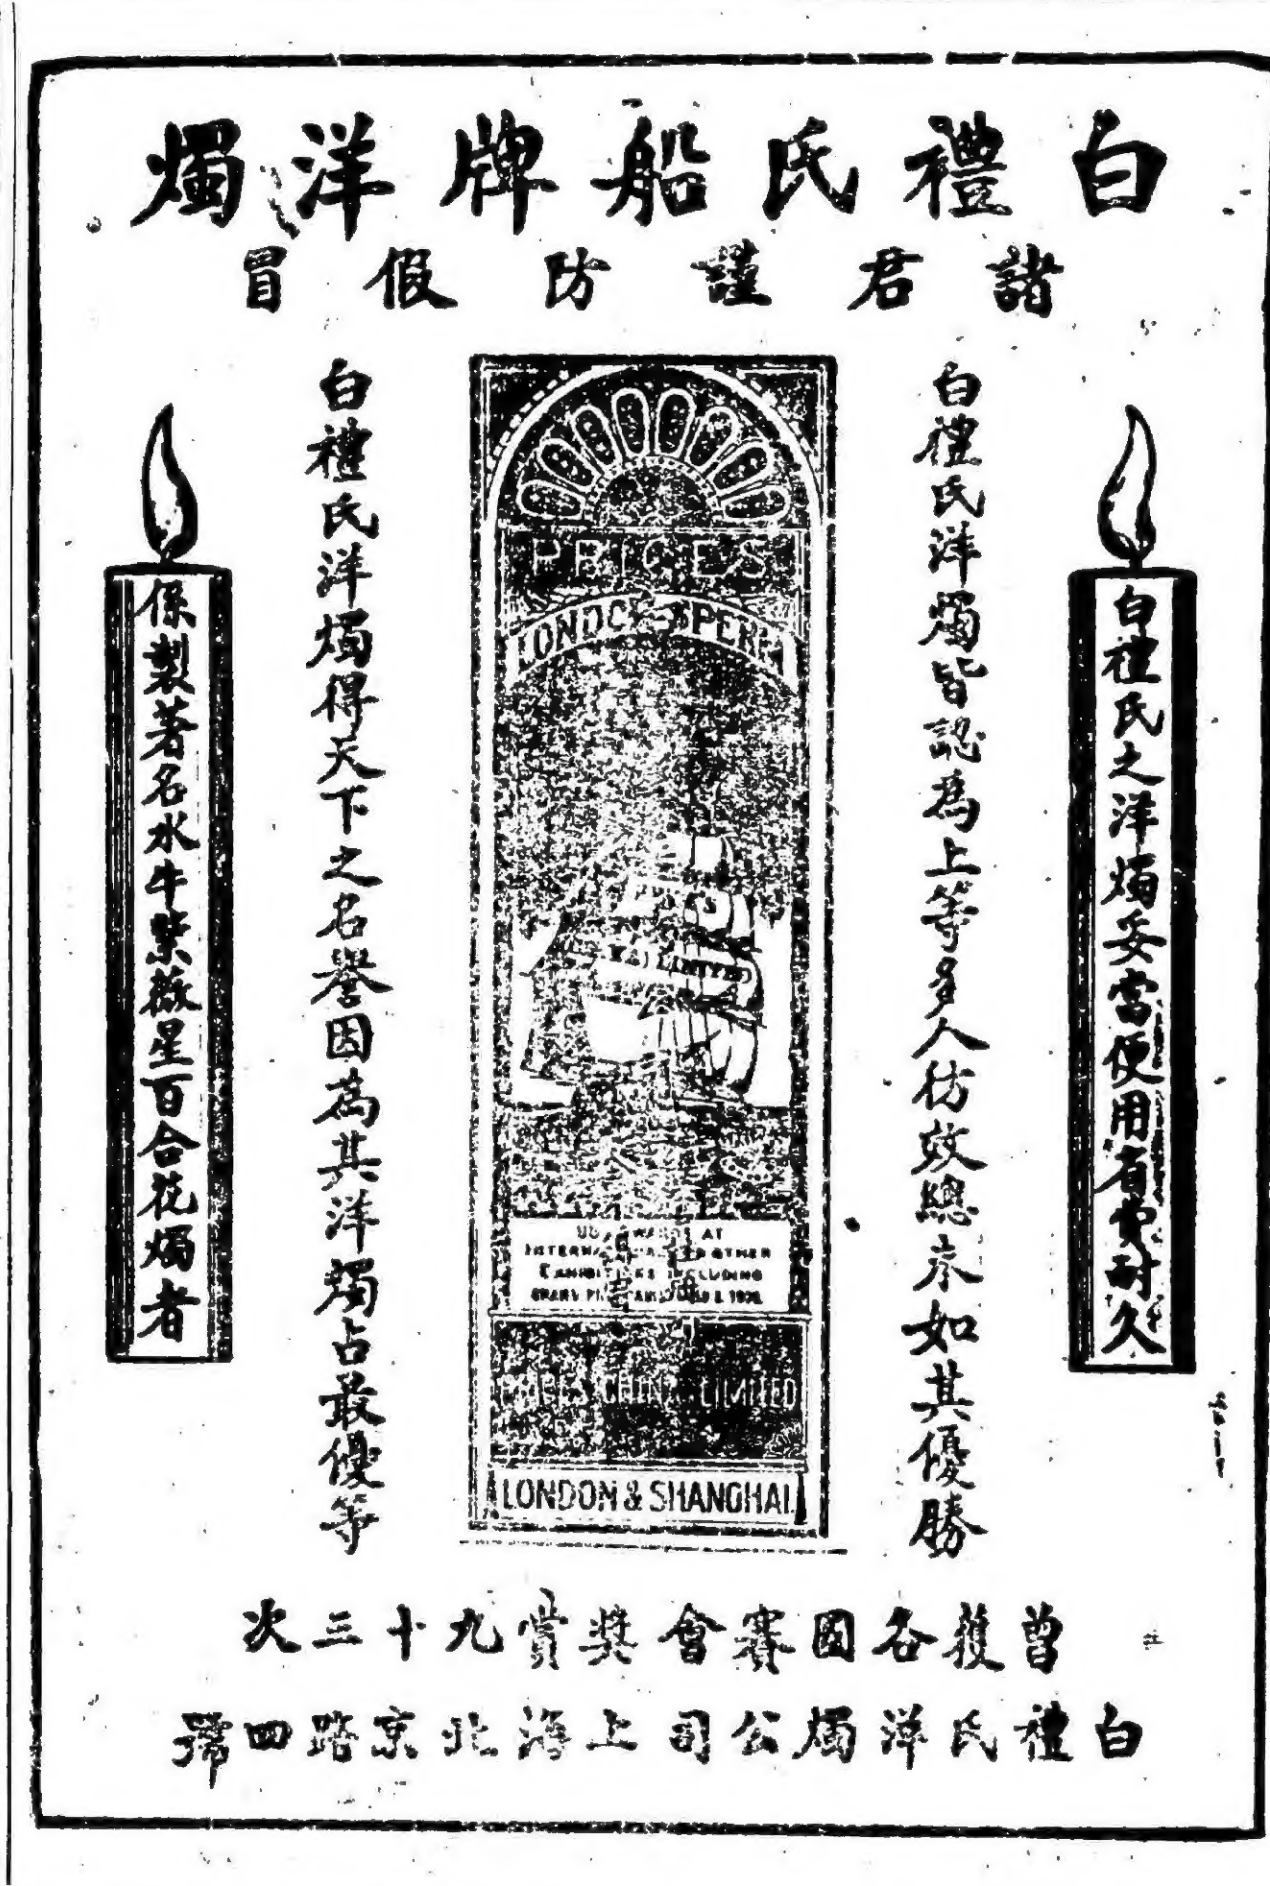 白禮氏船牌洋燭
諸君謹防假冒
白禮氏之洋燭妥當便用省費耐久
白禮氏洋燭皆認為上等多人仿效總未如其優勝
PRICES
LONDON SPERM
LIMITED
AWARDS AT
INTERNATIONAL & OTHER
EXHIBITIONS INCLUDING
GRAND PRIX
PRICE'S CHINA LIMITED
LONDON & SHANGHAI
白禮氏洋燭得天下之名譽因為其洋燭占最優等
係製著名水牛紫薇星百合花燭者
曾獲各國賽會獎賞九十三次
白禮氏洋燭公司上海北京路四號